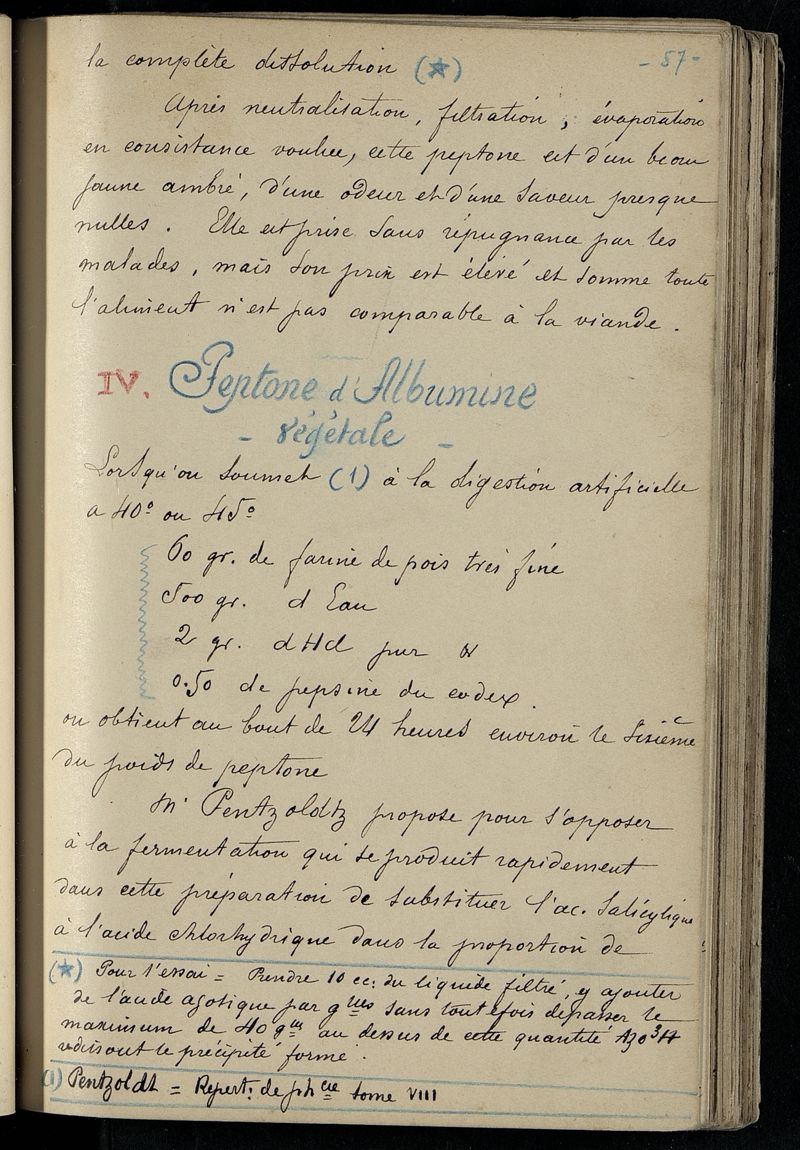 - 87 -
la complète dissolution (*)
Après neutralisation, filtration, évaporation
en consistance voulue, cette peptone est d'un beau
jaune ambré, d'une odeur et d'une saveur presque
nulles. Elle est prise sans répugnance par les
malades, mais son prix est élévé et somme toute
l'aliment n'est pas comparable à la viande.
IV. Peptone d'Albumine
- végétale -
Lorsqu'on soumet (1) à la digestion artificielle
a 40° ou 45°
60 gr. de farine de pois très fine
500 gr. d Eau
2 gr. d HCl pur
0.50 de pepsine du codex.
on obtient au bout de 24 heures environ le sixième
du poids de peptone
Mr Pentzoldtz propose pour s'opposer
à la fermentation qui se produit rapidement
dans cette préparation de substituer l'ac. Salicylique
à l'acide chlorhydrique dans la proportion de
(*) Pour l'essai = Prendre 10 cc: du liquide filtré, y ajouter
de l'acide azotique par gttes sans toutefois dépasser le
maximum de 40 gtes au dessus de cette quantité AzO³H
redissout le précipité formé.
(1) Pentzoldt = Repert: de phcie tome VIII